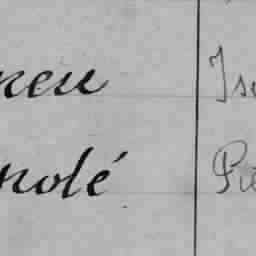 neu Is
nolé Pie